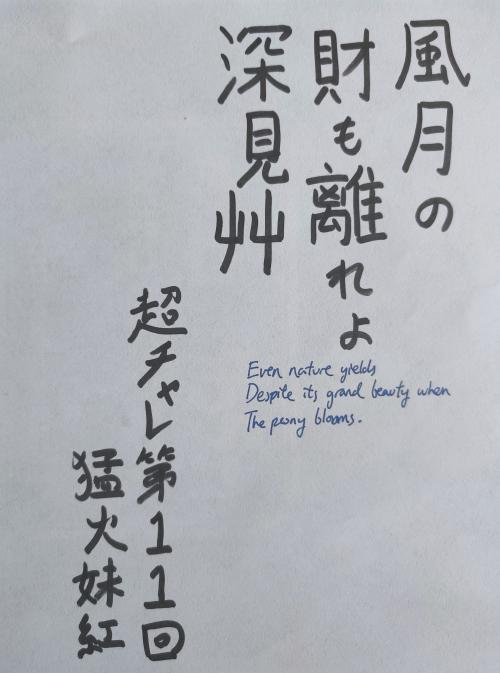 風月の
財も離れよ
深見艸
Even nature yields
Despite its grand beauty when
The peony blooms.
超チャレ第11回
猛火妹紅